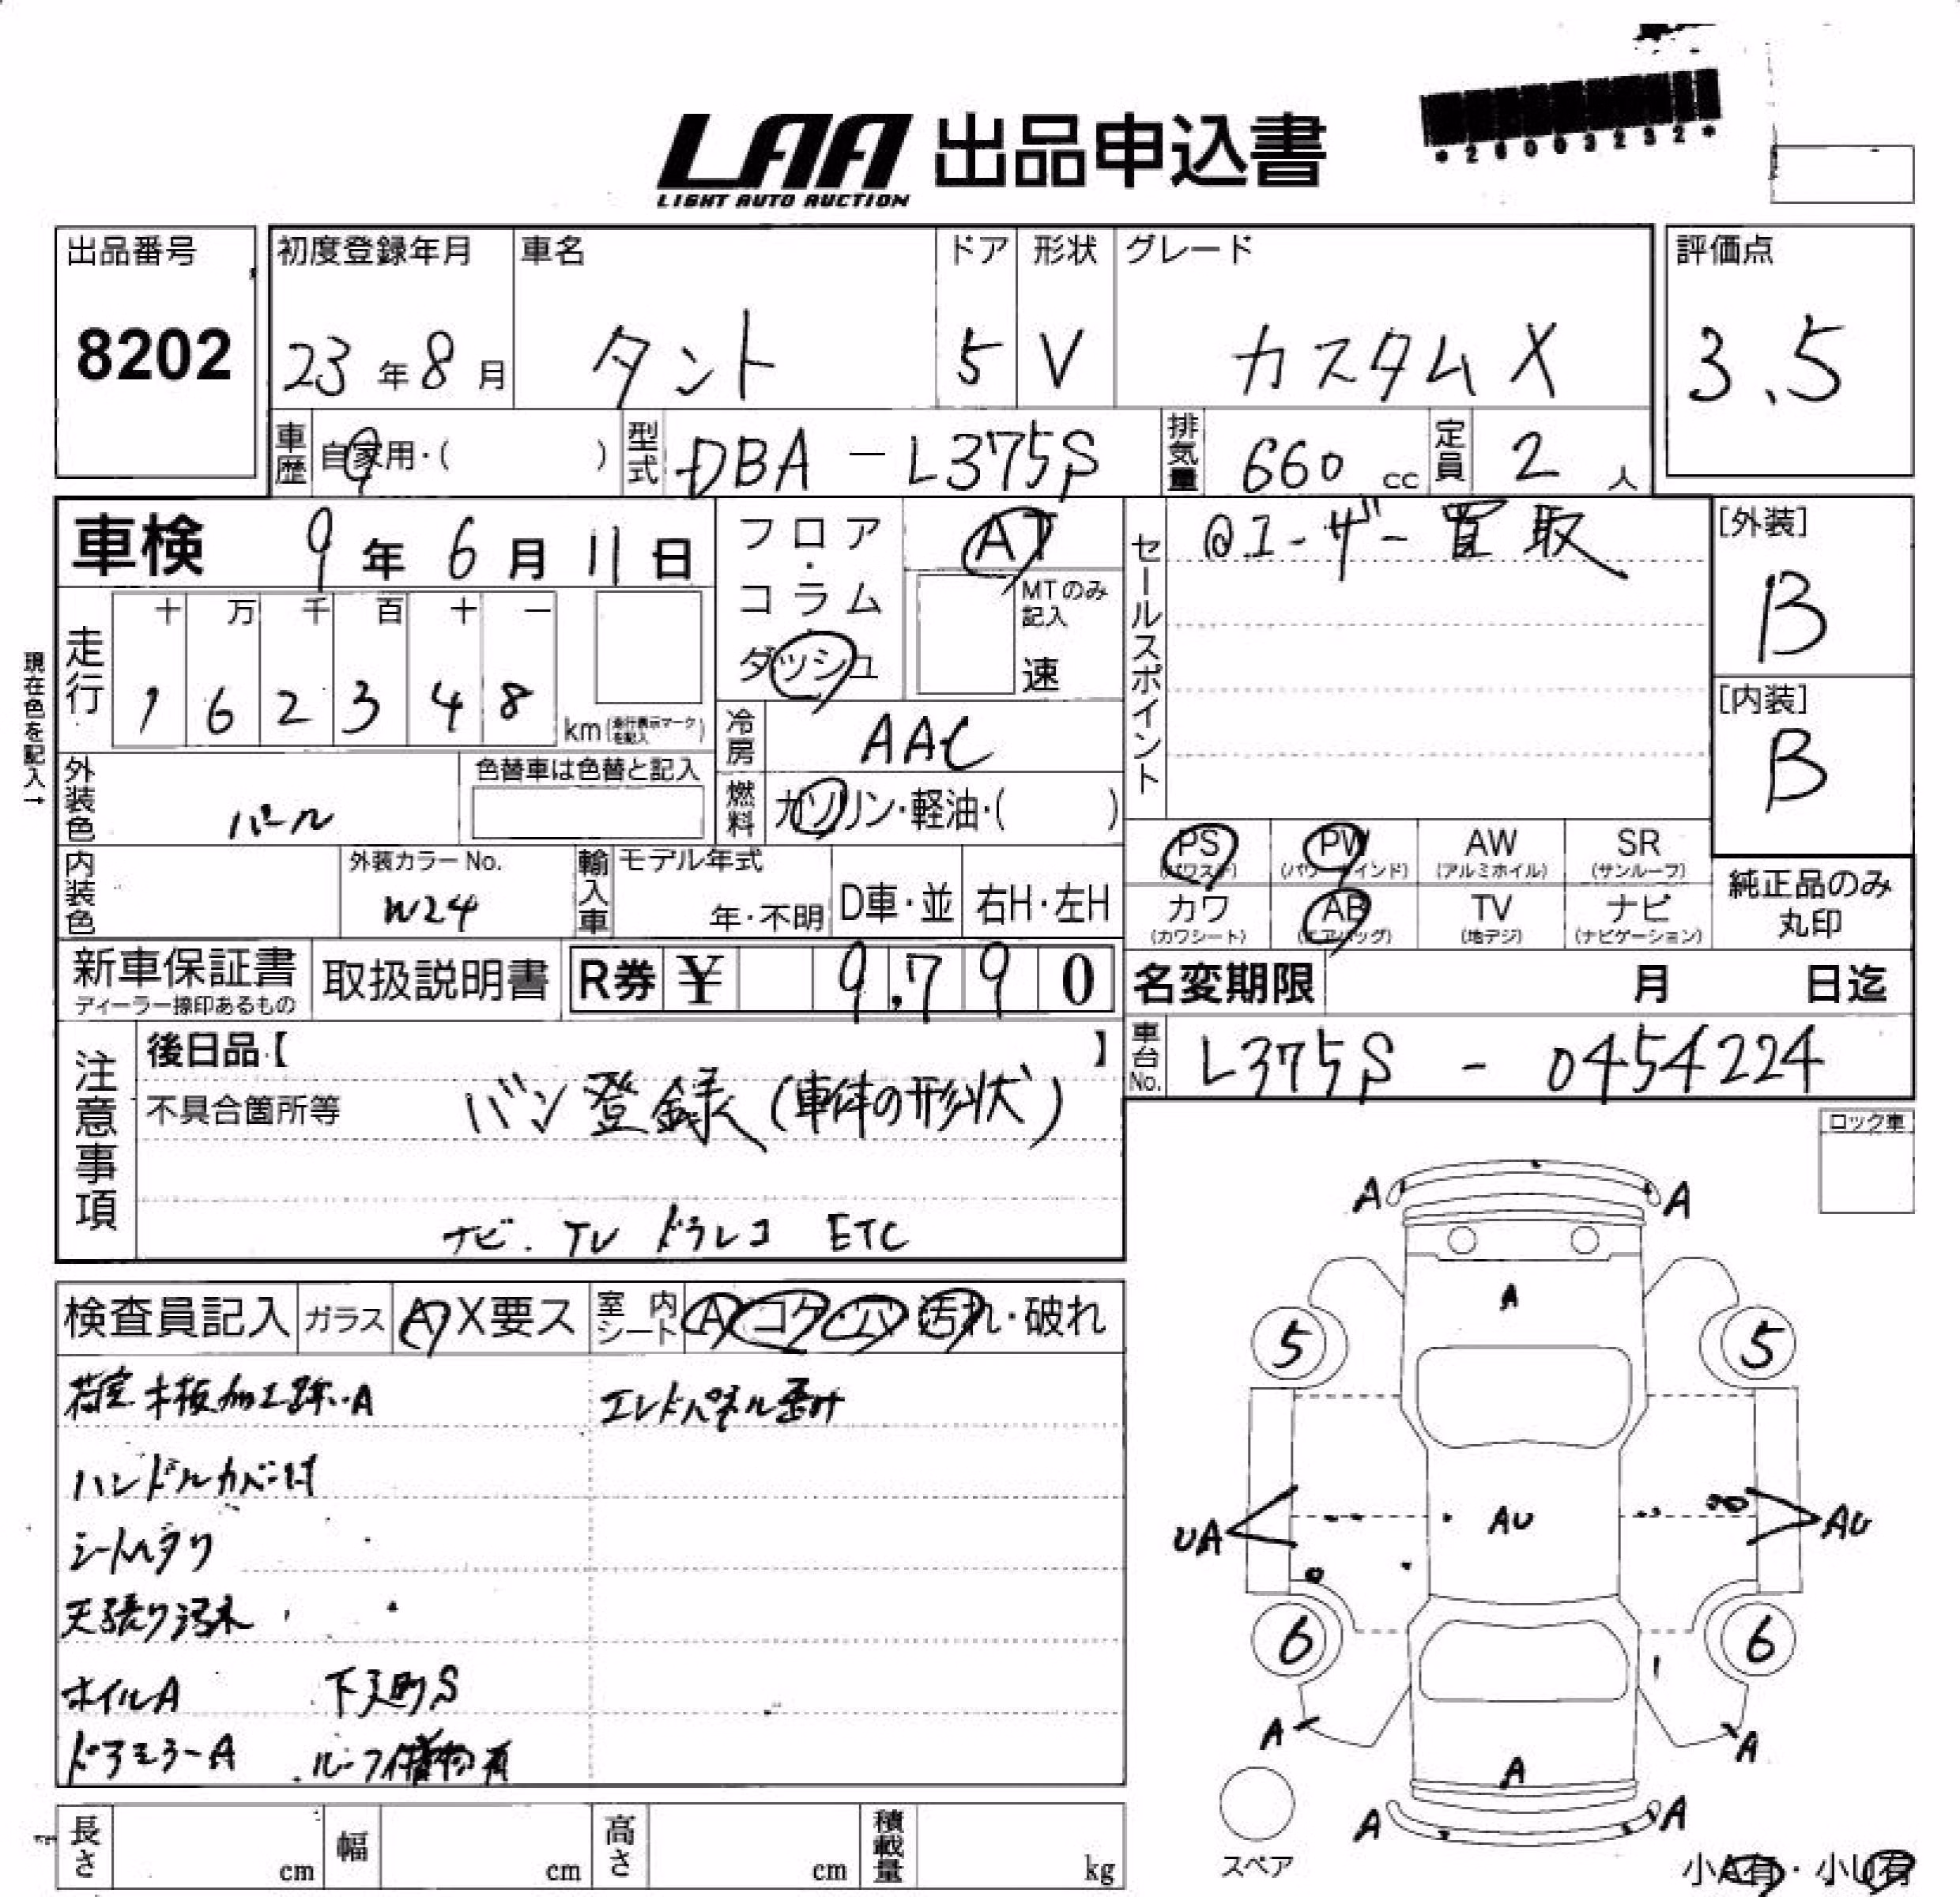 LAA 出品申込書
LIGHT AUTO AUCTION
*26003232*
出品番号 初度登録年月 車名 ドア 形状 グレード 評価点
8202 23年8月 タント 5 V カスタムX 3.5
車歴 自家用・( ) 型式 DBA-L375S 排気量 660cc 定員 2人
車検 9年6月11日
フロア・コラム・ダッシュ AT
MTのみ記入 速
セールスポイント @ユーザー買取
[外装] B
[内装] B
現在色を記入→
走行 十 万 千 百 十 一
1 6 2 3 4 8 km(走行表示マークを記入)
冷房 AAC
外装色 パール 色替車は色替と記入
燃料 ガソリン・軽油・( )
PS(パワステ) PW(パワーウインド) AW(アルミホイル) SR(サンルーフ)
カワ(カワシート) AB(エアバッグ) TV(地デジ) ナビ(ナビゲーション)
純正品のみ丸印
内装色 外装カラーNo. W24 輸入車 モデル年式 年・不明 D車・並 右H・左H
新車保証書 ディーラー捺印あるもの 取扱説明書 R券 ¥ 9,790
名変期限 月 日迄
車台No. L375S - 0454224
注意事項 後日品【 】
不具合箇所等 バン登録(車体の形状)
ナビ.TV ドラレコ ETC
ロック車
検査員記入 ガラス A X要ス 室内シート A コゲ・穴 汚れ・破れ
荷室木板加工跡・A エンドパネル歪み
ハンドルカバー付
シートヘタリ
天張り汚れ
ホイルA 下廻りS
ドアミラーA
A A
A
5 5
UA AU AU
6 6
A A
A
A A
スペア
小A有・小U有
長さ cm 幅 cm 高さ cm 積載量 kg